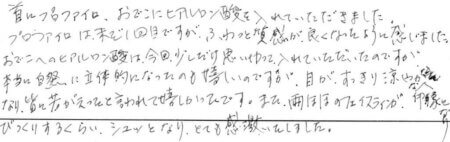 首にプロファイロ、おでこにヒアルロン酸を入れていただきました。
プロファイロは未だ1回目ですが、ふわっと質感が良くなったように感じました。
おでこへのヒアルロン酸は、今回、少しだけ思い切って、入れていただいたのですが
本当に自然に立体的になったのも嬉しいのですが、目が、すっきり涼やかな
なり、皆に若がえったと言われて嬉しかったです。また、両ほほのフェイスラインが、印象と
びっくりするくらい、シュッとなり、とても感激いたしました。